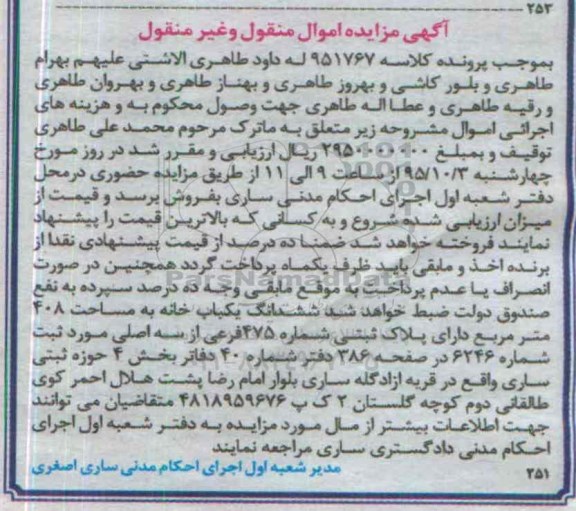 ۲۵۳
آگهی مزایده اموال منقول وغیر منقول
بموجب پرونده کلاسه ۹۵۱۷۶۷ له داود طاهری الاشتی علیهم بهرام
طاهری و بلور کاشی و بهروز طاهری و بهناز طاهری و بهروان طاهری
و رقیه طاهری و عطا اله طاهری جهت وصول محکوم به و هزینه های
اجرائی اموال مشروحه زیر متعلق به ماترک مرحوم محمد علی طاهری
توقیف و بمبلغ ۲۹۵۰۰۰۰۰۰۰ ریال ارزیابی و مقرر شد در روز مورخ
چهارشنبه ۹۵/۱۰/۳ از ساعت ۹ الی ۱۱ از طریق مزایده حضوری درمحل
دفتر شعبه اول اجرای احکام مدنی ساری بفروش برسد و قیمت از
میزان ارزیابی شده شروع و به کسانی که بالاترین قیمت را پیشنهاد
نمایند فروخته خواهد شد ضمنا ده درصد از قیمت پیشنهادی نقدا از
برنده اخذ و مابقی باید ظرف یکماه پرداخت گردد همچنین در صورت
انصراف یا عدم پرداخت به موقع مابقی وجه ده درصد سپرده به نفع
صندوق دولت ضبط خواهد شد ششدانگ یکباب خانه به مساحت ۴۰۸
متر مربع دارای پلاک ثبتی شماره ۴۷۵فرعی از سه اصلی مورد ثبت
شماره ۶۲۴۶ در صفحه ۳۸۶ دفتر شماره ۴۰ دفاتر بخش ۴ حوزه ثبتی
ساری واقع در قریه ازادگله ساری بلوار امام رضا پشت هلال احمر کوی
طالقانی دوم کوچه گلستان ۲ ک پ ۴۸۱۸۹۵۹۶۷۶ متقاضیان می توانند
جهت اطلاعات بیشتر از مال مورد مزایده به دفتر شعبه اول اجرای
احکام مدنی دادگستری ساری مراجعه نمایند
مدیر شعبه اول اجرای احکام مدنی ساری اصغری
۲۵۱
ParsNamadData